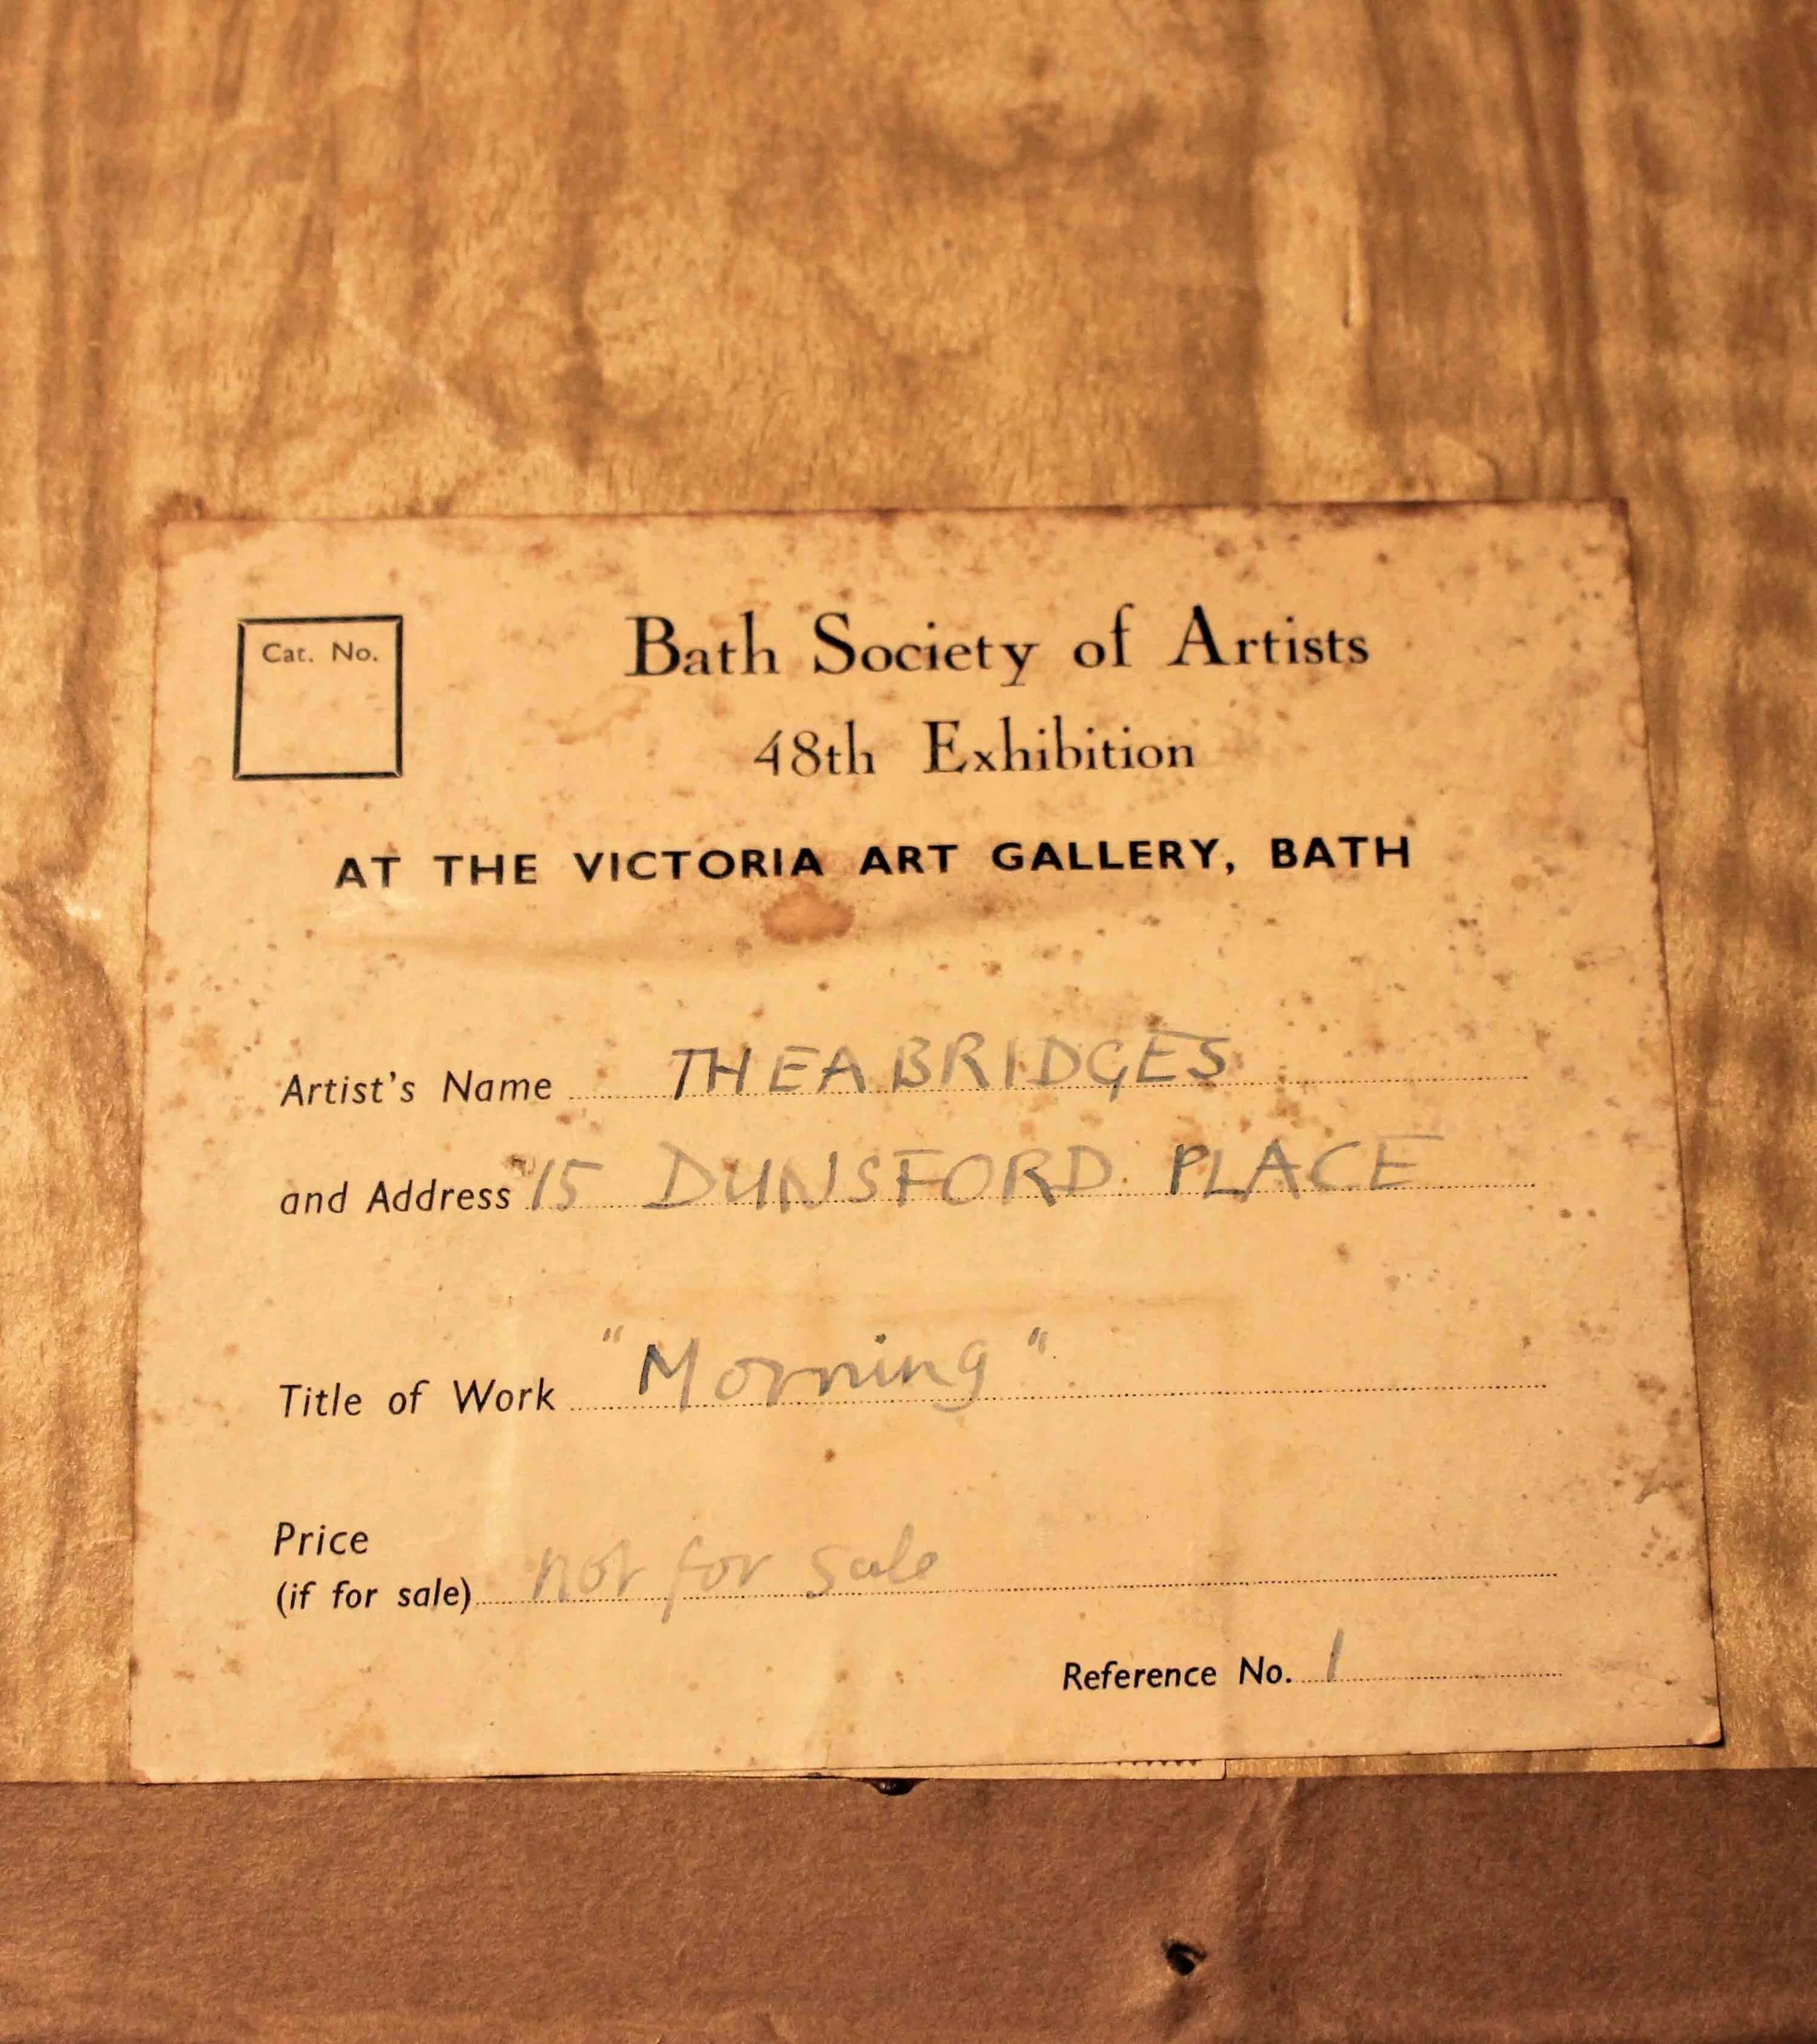 Cat. No.
Bath Society of Artists
48th Exhibition
AT THE VICTORIA ART GALLERY, BATH
Artist's Name THEA BRIDGES
and Address 15 DUNSFORD PLACE
Title of Work "Morning"
Price
(if for sale) not for sale
Reference No. 1